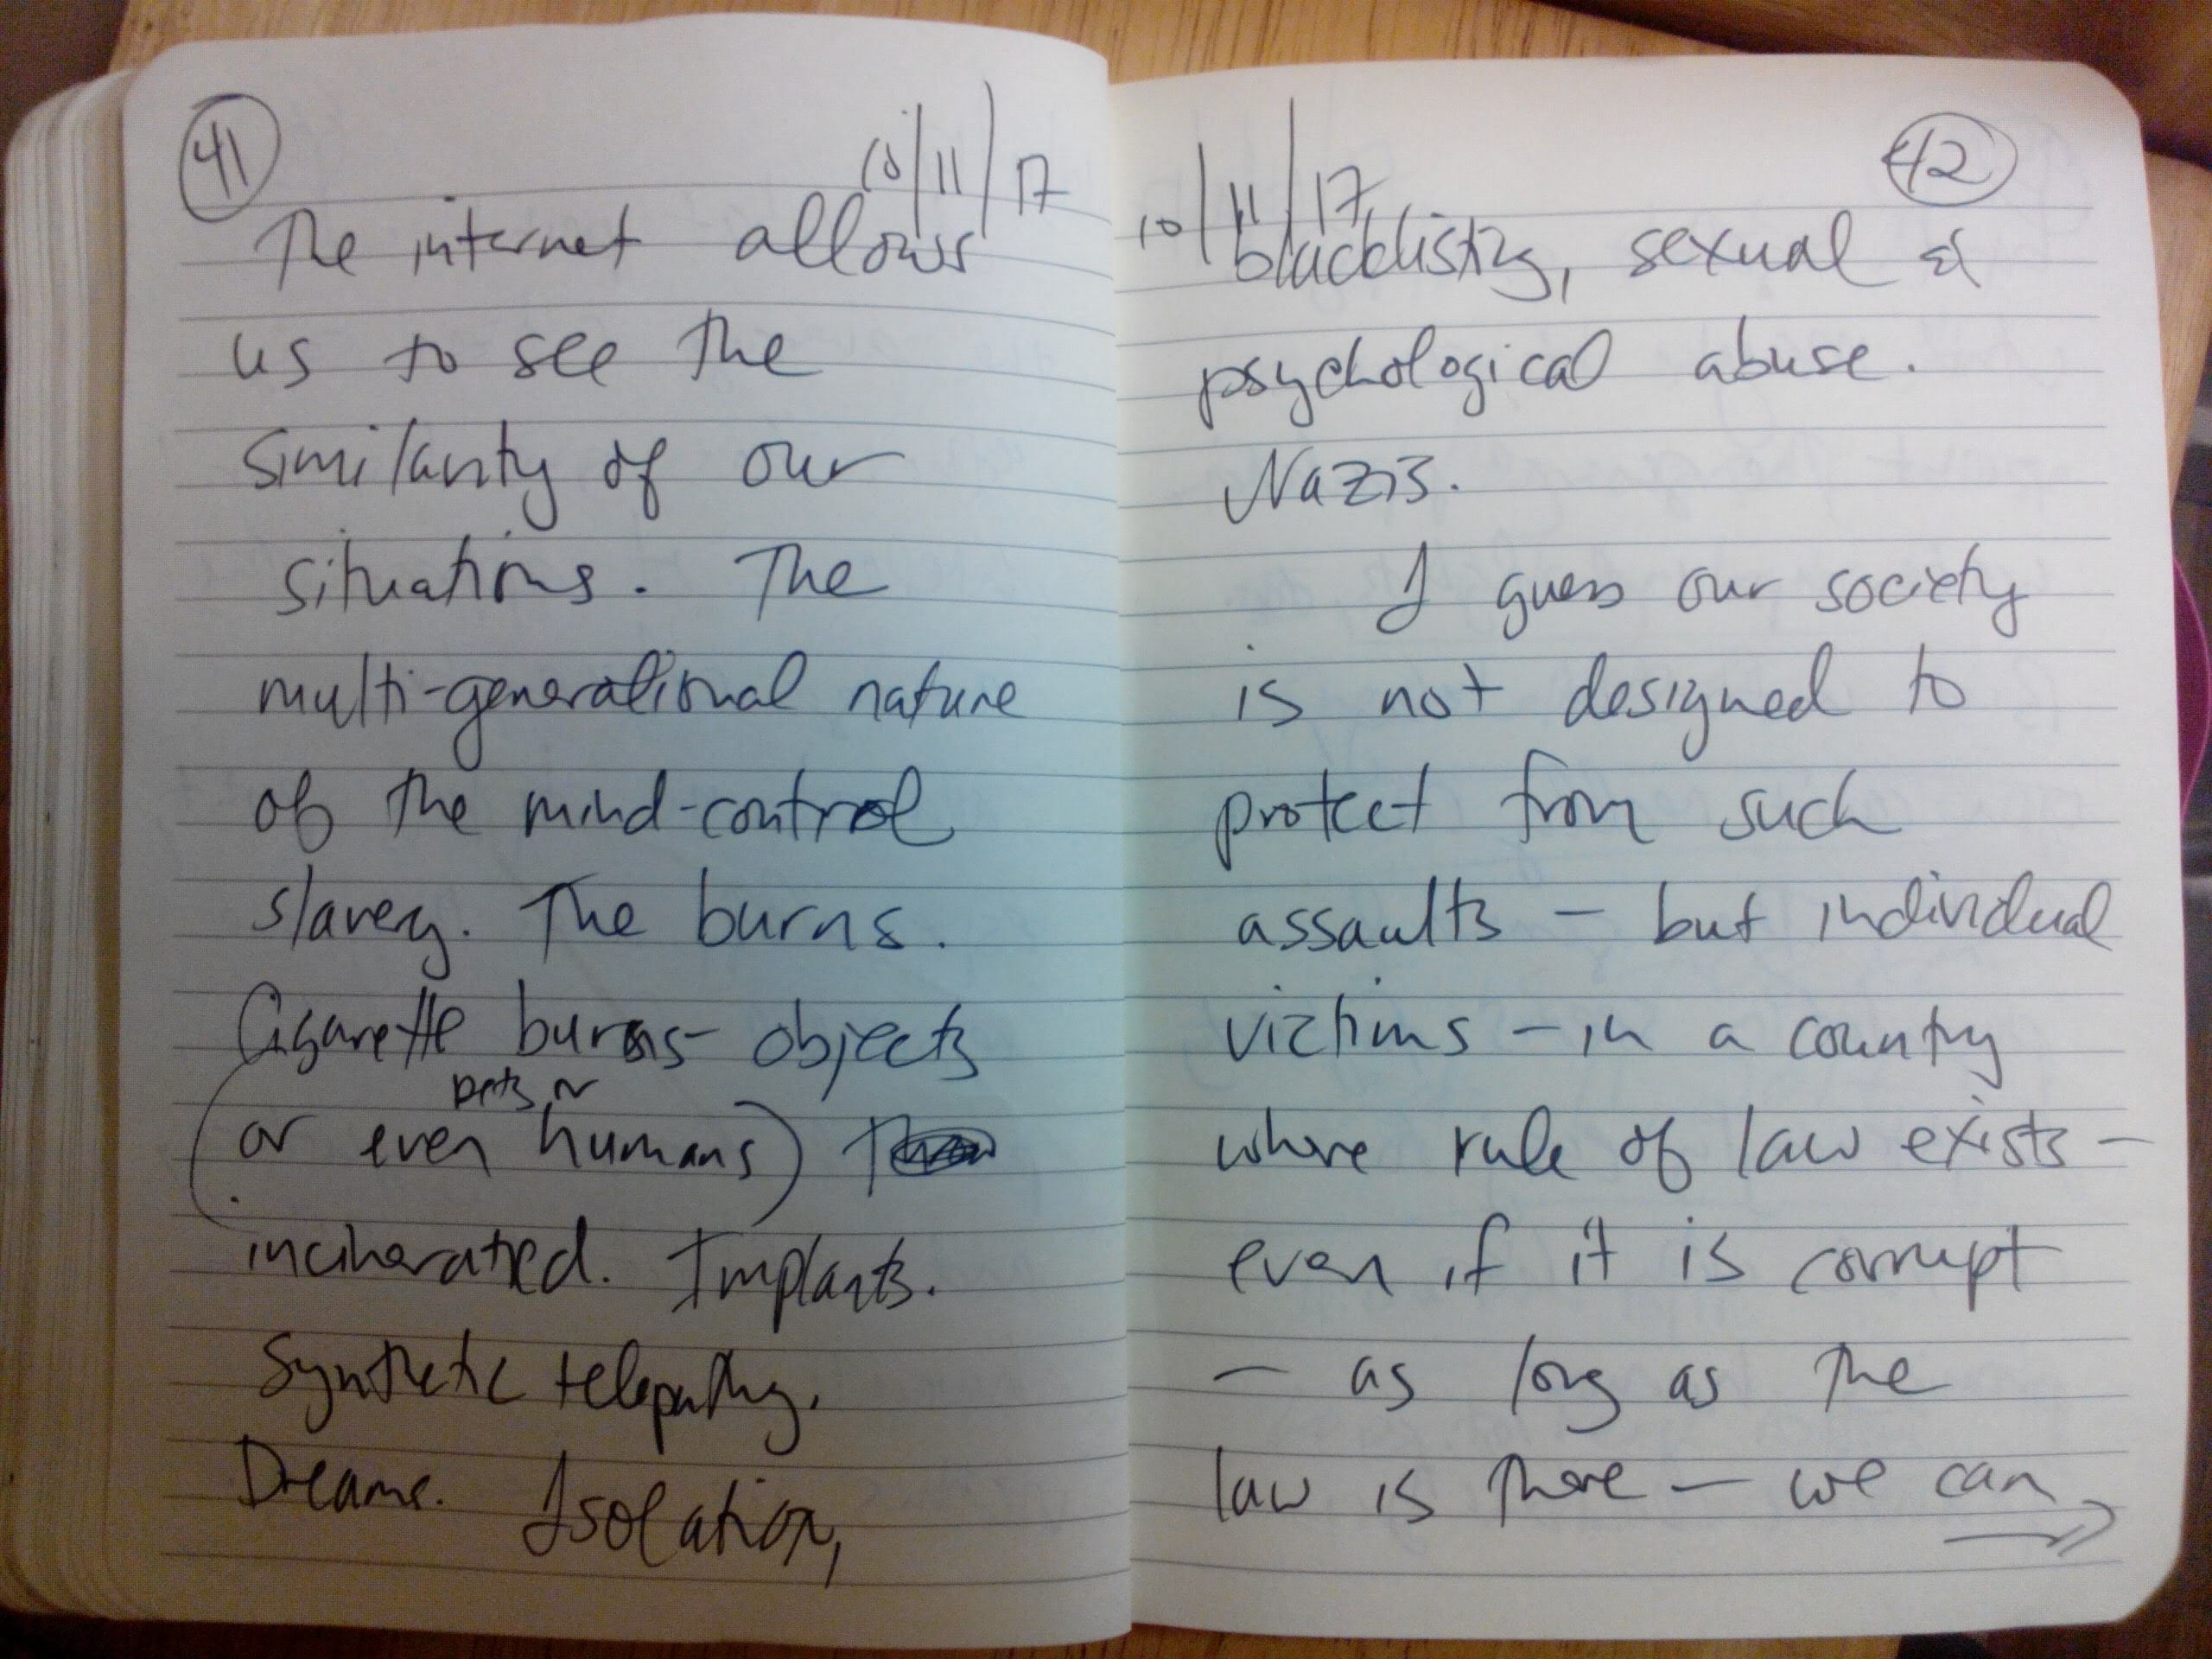 41
10/11/17
The internet allows
us to see the
similarity of our
situations. The
multi-generational nature
of the mind-control
slavery. The burns.
Cigarette burns - objects
pets or
(or even humans)
incinerated. Implants.
Synthetic telepathy.
Dreams. Isolation,
42
10/11/17
blacklisting, sexual &
psychological abuse.
Nazis.
I guess our society
is not designed to
protect from such
assaults - but individual
victims - in a country
where rule of law exists -
even if it is corrupt
- as long as the
law is there - we can
→